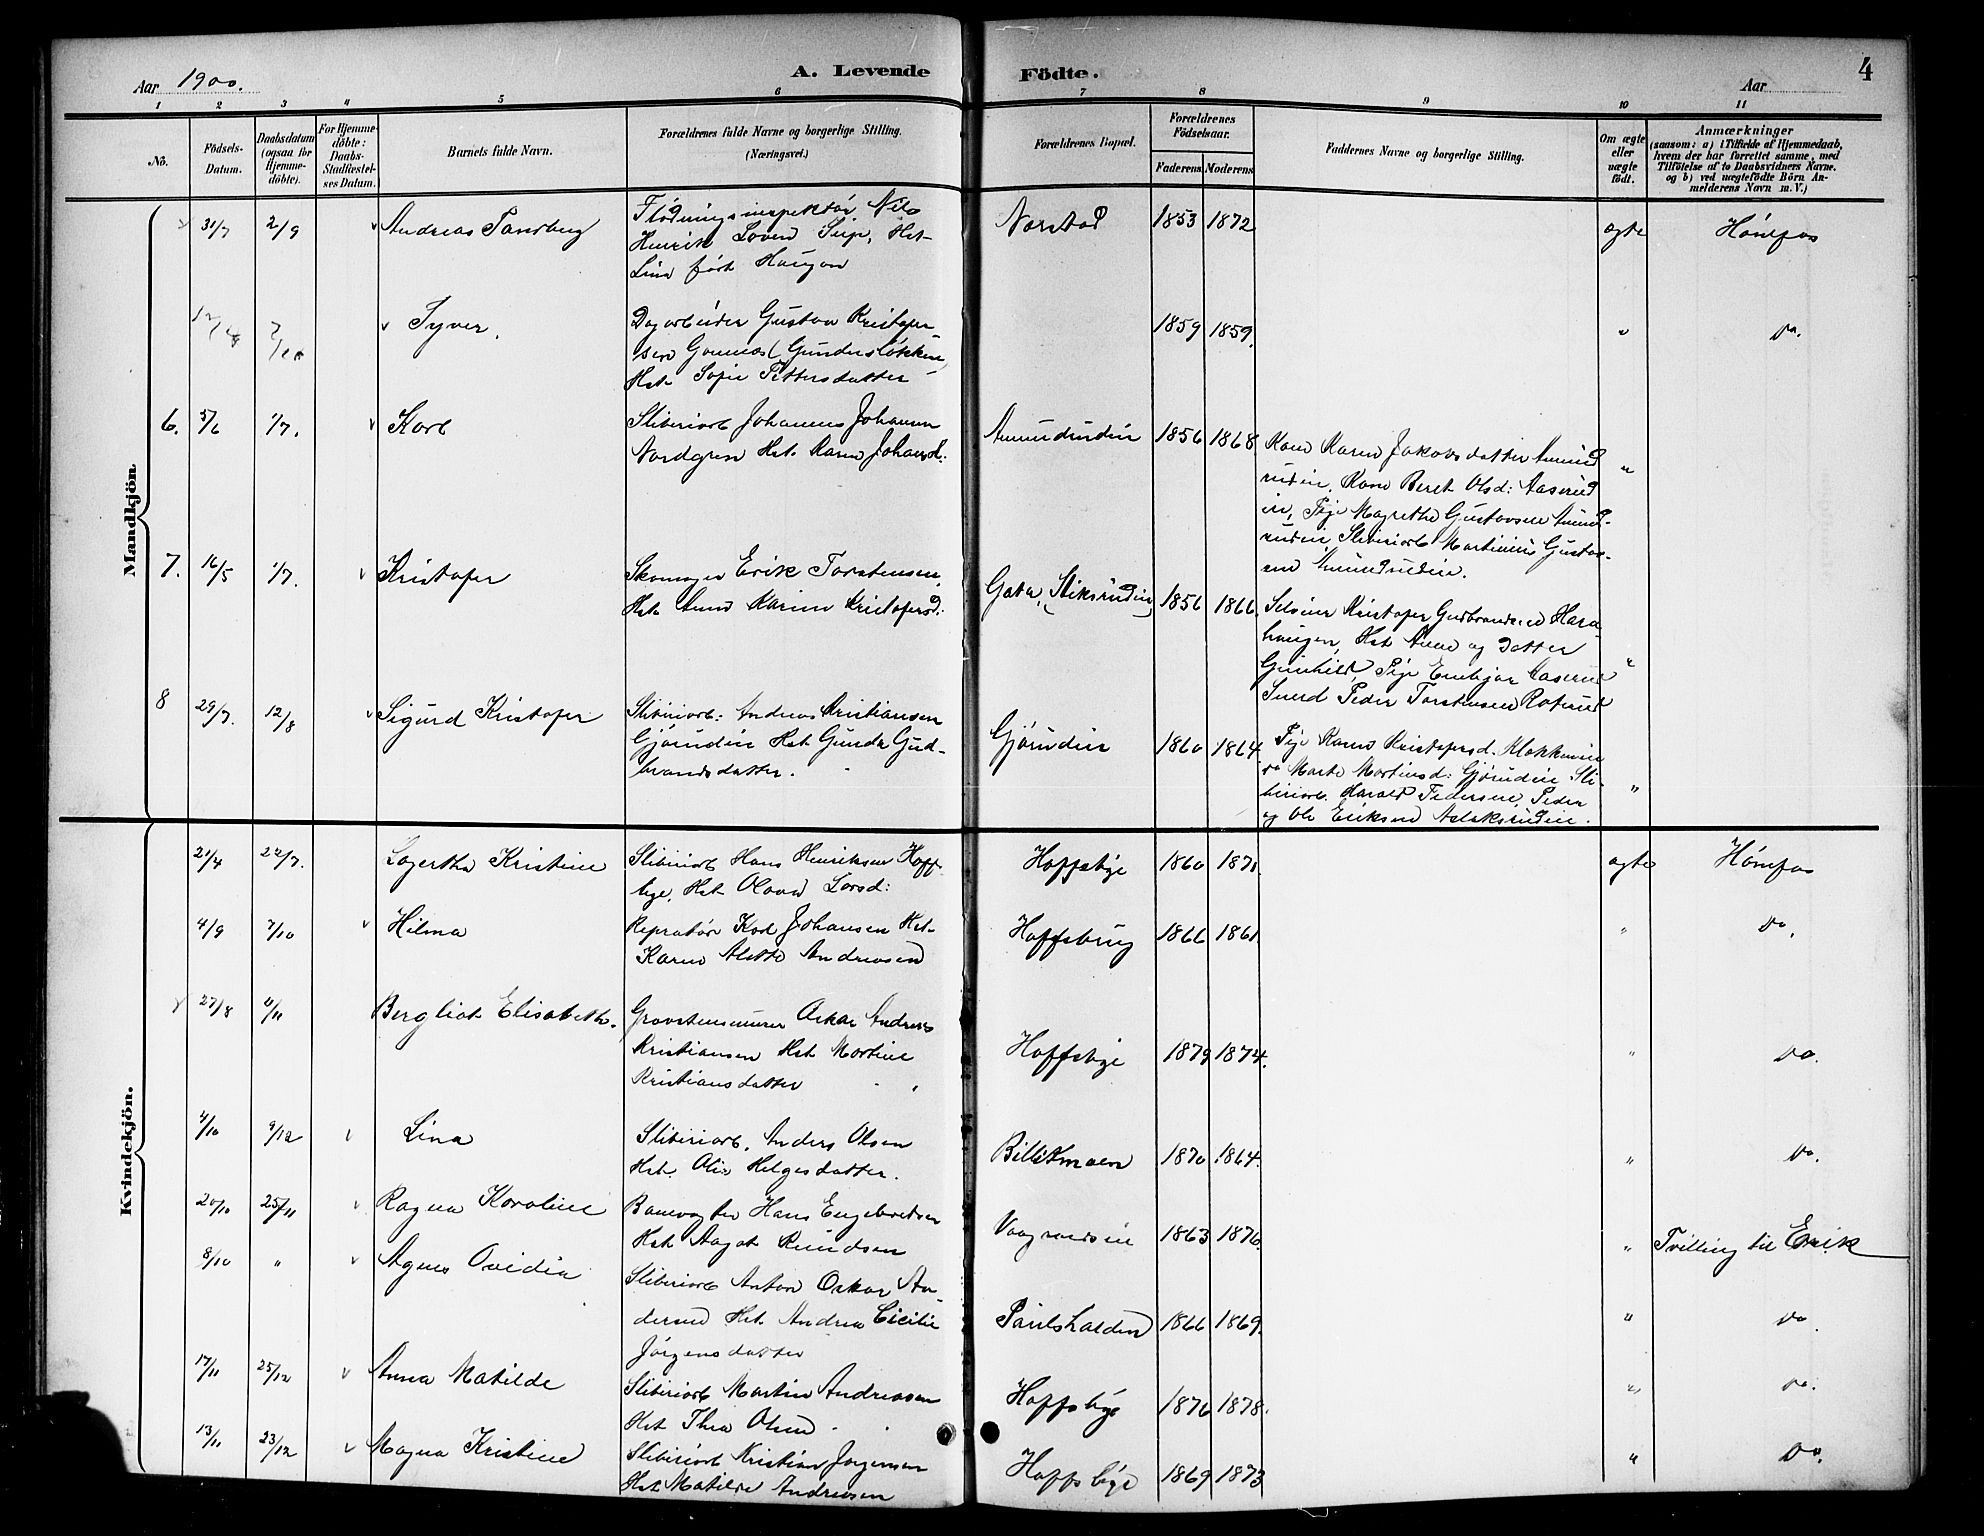 Aar 1900.
A. Levende Födte.
Aar
4
1 2 3 4 5 6 7 8 9 10 11
No.
Födsels-Datum.
Daabsdatum (ogsaa for Hjemme-döbte).
For Hjemme-döbte: Daabs-Stadfæstel-ses Datum.
Barnets fulde Navn.
Forældrenes fulde Navne og borgerlige Stilling. (Næringsvei.)
Forældrenes Bopæl.
Forældrenes Födselsaar.
Faderens Moderens
Faddernes Navne og borgerlige Stilling.
Om ægte eller uægte födt.
Anmærkninger
(saasom: a) i Tilfælde af Hjemmedaab,
hvem der har forrettet samme, med
Tilföielse af to Daabsvidners Navne.
og b) ved uægtefödte Börn An-
melderens Navn m. V.)
Mandkjön
31/7 2/9 Andreas Sandberg
Flødningsinspektør Nils
Henrik Loven Seip, Hst
Lina født Haugan
1853 1872 ægte Hønefos
Dagarbeider Gustav Kristofer-
sen
Hst. Sofie Pettersdatter
1859 1859. " do.
6. 5/6 1/7. Karl
Sliberiarb Johannes Johannes
Nordgren Hst. Karen Johansd:
Amundrudin 1856 1868.
Kone Karen Jakobsdatter Amund
rudin, Kone Beret Olsd: Aaserud
in, Pige Magrethe Gustavsen Amund-
rudin Sliberiarb Martinius Gustav-
sen Amundrudin. "
7. 16/5 1/7. Kristofer
Skomager Erik Torstensen,
Hst. Anne Karine Kristofersd:
Gata, (Stiksrudin) 1856 1866.
Kristofer Gudbrandsen Hara-
haugen, Hst Anne og Datter
Gunhild, Pige Aaserud
Svend Peder Torstensen Roterud "
8 29/7. 12/8 Sigurd Kristofer
Sliberiarb: Andreas Kristiansen
Gjørudin Hst Gunda Gud-
brandsdatter.
Gjørudin 1860 1864.
Pige Karen Kristofersd. Klokkerin
do Marte Martinsd: Gjørudin Sli-
beriarb. Harald Pedersen, Peder
og Ole Eriksen Aslaksrudin. "
Kvindekjön.
21/4 22/7. Lagertha Kristine
Sliberiarb Hans Henriksen Hoff-
bye, Hst. Olava Larsd:
Hoffsbye 1860 1871. ægte Hønefos
4/9 7/10 Hilma
Repratør Karl Johansen Hst-
Karen Alette Andreasen
Hoffsbrug 1866 1861. " do.
27/8 4/11 Bergliot Elisabeth.
Gravstensmurer Oskar Andreas
Kristiansen Hst Martine
Kristiansdatter
Hoffsbye 1879 1874. " do.
4/10 9/12 Lina
Sliberiarb. Anders Olsen
Hst. Olia Helgesdatter.
1870 1864. " do.
20/10 25/11 Ragna Karoline
Banevogter Hans Engebretsen
Hst Aagot Knudsen
1863 1876. " Tvilling til Erik
8/10 " Agnes Ovidia
Sliberiarb Anton Oskar An-
dersen Hst. Andrea Cicilie
Jørgensdatter
Paulshalden 1866 1869. " do
17/11 25/12 Anna Matilde
Sliberiarb Martin Andreasen
Hst. Thea Olsen
Hoffsbye 1876 1878. " do.
13/11 23/12 Magna Kristine
Sliberiarb Kristian Jørgensen
Hst. Matilde Andreasen
Hoffsbye 1869 1873 " do.